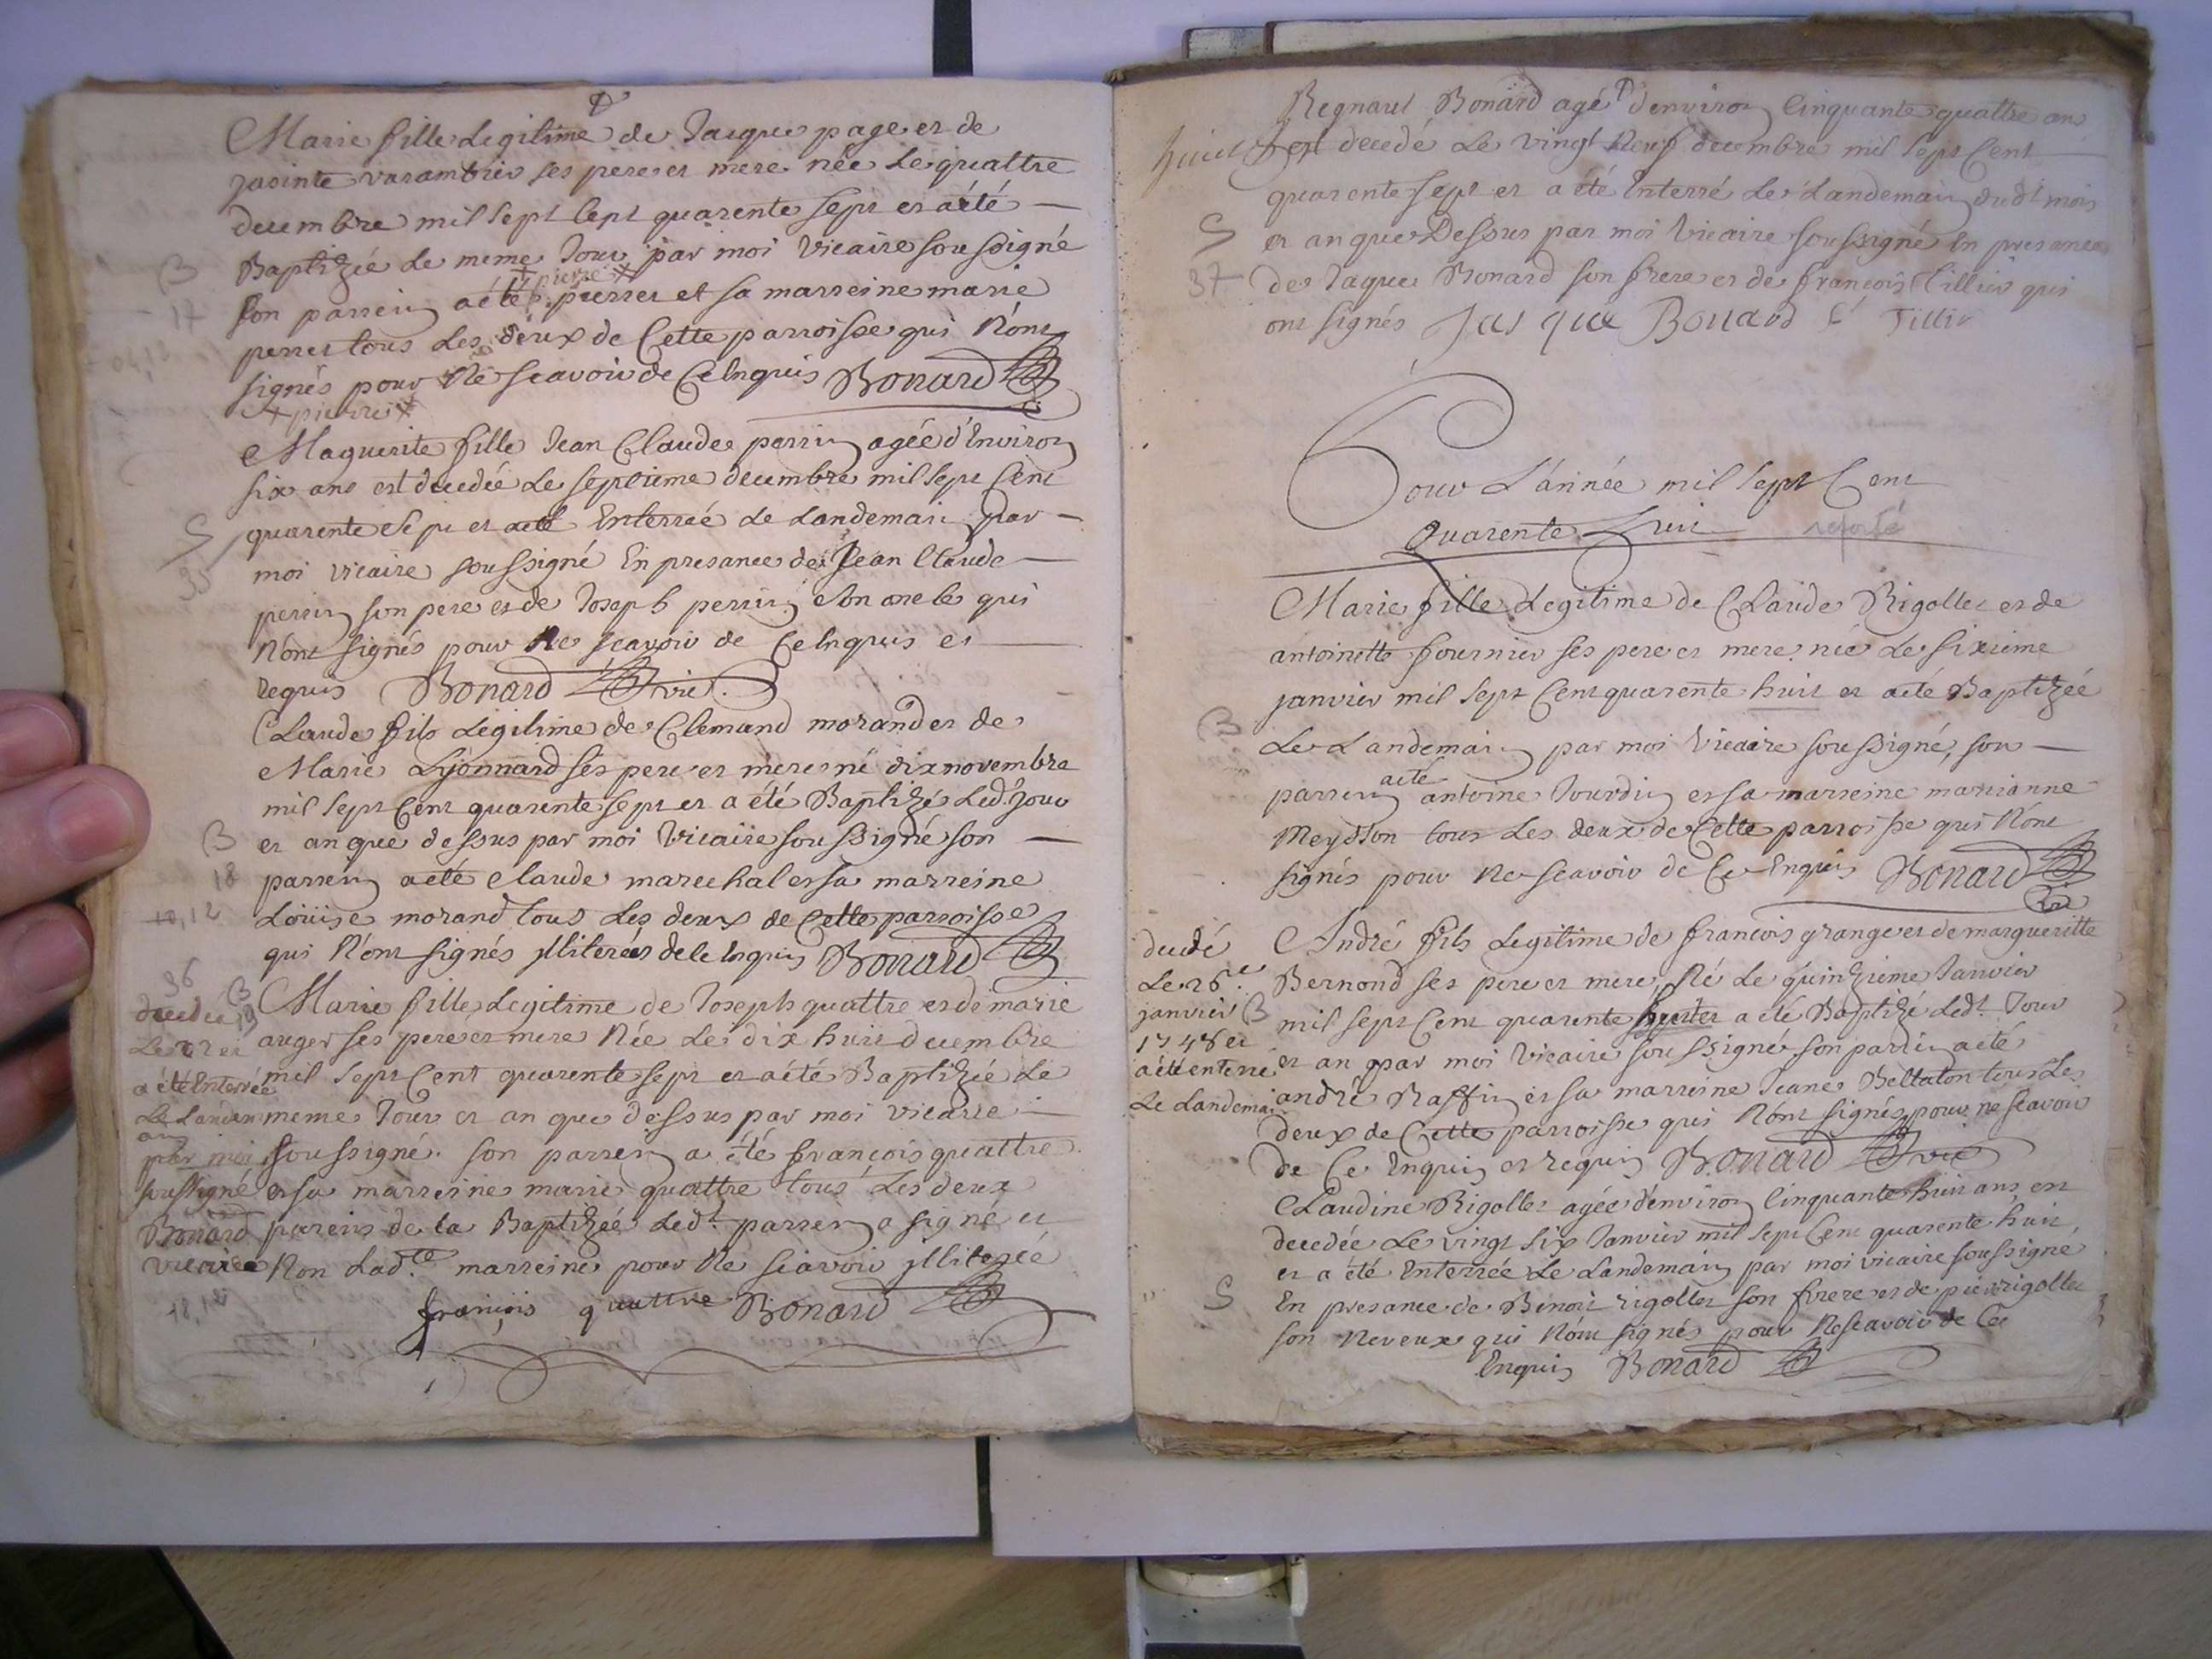 Marie fille Legitime de Jacque page et de
Jasinte varambier ses pere et mere née Le quattre
decembre mil sept Cept quarente sept et a été —
B
Baptizée Le meme Jour par moi Vicaire soussigné
pierre
17
son parrein a été pierre et sa marreine marie
perret tous Les deux de Cette parroisse qui N'ont
signés pour Ne scavoir de Ce Enquis Bonard
+ pierre +
Maguerite fille Jean Claude perrin agée d'Environ
six ans est decedée Le septieme decembre mil sept Cent
S
quarente sept et a été Enterrée Le Landemain par —
35
moi vicaire soussigné En presance de Jean Claude —
perrin son pere et de Joseph perrin son oncle qui
N'ont signés pour Ne scavoir de Ce Enquis et —
requis Bonard vic.
Claude fils Legitime de Clemand morand et de
Marie Lyonnard ses pere et mere né dix novembre
mil sept Cent quarente sept et a été Baptizé Led. Jour
B
et an que dessus par moi Vicaire soussigné son —
18
parrein a été Claude marechal et sa marreine
10,12
Loüise morand tous Les deux de Cette parroisse
qui N'ont signés Jlliterés de Ce Enquis Bonard
36
B
19
Marie fille Legitime de Joseph quattre et de marie
auger ses pere et mere Née Le dix huit decembre
mil sept Cent quarente sept et a été Baptizée Le
meme Jour et an que dessus par moi vicaire —
soussigné. son parrein a été françois quattre
et sa marreine marie quattre tous Les deux
parens de la Baptizée Led.t parrein a signé et
Non Lad.te marreine pour Ne scavoir Jlliterée
decedée
Le 22 et
a été Enterrée
Le Landem
ain
par moi
soussigné
Bonard
vicaire
18,12
françois quattre Bonard
Regnaut Bonard agé d'environ Cinquante quattre ans
huit
est decedé Le vingt Neuf decembre mil sept Cent —
quarente sept et a été Enterré Le Landemain dudt mois
S
et an que Dessus par moi Vicaire soussigné En presance
37
de Jaque Bonard son frere et de françois Tillier qui
ont signés Jas que Bonard f Tillir
Pour L'année mil sept Cent
Quarente huit reporté
Marie fille Legitime de Claude Rigollet et de
antoinette fournier ses pere et mere née Le sixieme
janvier mil sept Cent quarente huit et a été Baptizée
B
Le Landemain par moi Vicaire soussigné, son —
a été
parrein antoine Jourdin et sa marreine marianne
Meydson tous Les deux de Cette parroisse qui N'ont
signés pour Ne scavoir de Ce Enquis Bonard
vic
André fils Legitime de françois grange et de margueritte
Bernond ses pere et mere, Né Le quinzieme Janvier
B
mil sept Cent quarente huit et a été Baptizé Led.t Jour
et an par moi Vicaire soussigné son parrein a été
andré Raffin et sa marreine Jeane Bellaton tous Les
deux de Cette parroisse qui N'ont signés pour ne scavoir
de Ce Enquis et requis Bonard vic
decedé
Le 26.e
janvier
1748 et
a été enterré
Le Landemain
Claudine Rigollet agée d'environ Cinquante huit ans est
decedée Le vingt six Janvier mil sept Cent quarente huit,
et a été Enterrée Le Landemain par moi vicaire soussigné
S
En presance de Benoit rigollet son frere et de pier rigollet
son Neveux qui N'ont signés pour Ne scavoir de Ce
Enquis Bonard